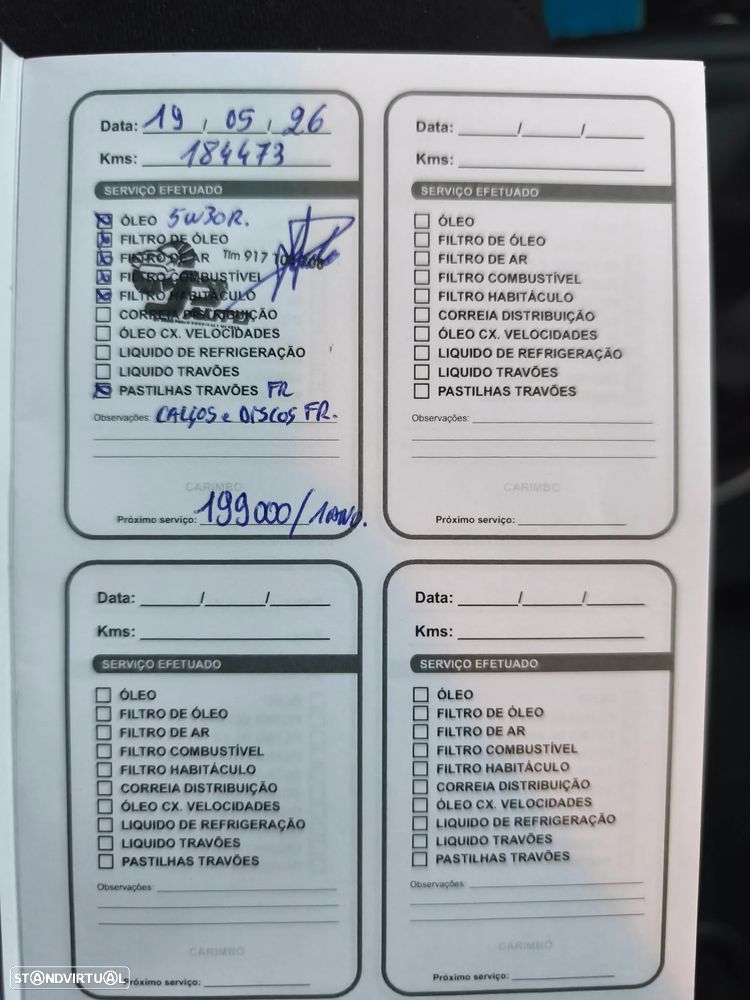 Data: 19 / 05 / 26
Kms: 184473
SERVIÇO EFETUADO
ÓLEO 5W30R.
FILTRO DE ÓLEO
FILTRO DE AR Tlm 917
FILTRO COMBUSTÍVEL
FILTRO HABITÁCULO
CORREIA DISTRIBUIÇÃO
ÓLEO CX. VELOCIDADES
LIQUIDO DE REFRIGERAÇÃO
LIQUIDO TRAVÕES
PASTILHAS TRAVÕES FR
Observações: CALÇOS e DISCOS FR.
CARIMBO
Próximo serviço: 199000/1ANO.
Data: ___/___/___
Kms:
SERVIÇO EFETUADO
ÓLEO
FILTRO DE ÓLEO
FILTRO DE AR
FILTRO COMBUSTÍVEL
FILTRO HABITÁCULO
CORREIA DISTRIBUIÇÃO
ÓLEO CX. VELOCIDADES
LIQUIDO DE REFRIGERAÇÃO
LIQUIDO TRAVÕES
PASTILHAS TRAVÕES
Observações:
CARIMBO
Próximo serviço:
Data: ___/___/___
Kms:
SERVIÇO EFETUADO
ÓLEO
FILTRO DE ÓLEO
FILTRO DE AR
FILTRO COMBUSTÍVEL
FILTRO HABITÁCULO
CORREIA DISTRIBUIÇÃO
ÓLEO CX. VELOCIDADES
LIQUIDO DE REFRIGERAÇÃO
LIQUIDO TRAVÕES
PASTILHAS TRAVÕES
Observações:
CARIMBO
Próximo serviço:
Data: ___/___/___
Kms:
SERVIÇO EFETUADO
ÓLEO
FILTRO DE ÓLEO
FILTRO DE AR
FILTRO COMBUSTÍVEL
FILTRO HABITÁCULO
CORREIA DISTRIBUIÇÃO
ÓLEO CX. VELOCIDADES
LIQUIDO DE REFRIGERAÇÃO
LIQUIDO TRAVÕES
PASTILHAS TRAVÕES
Observações:
CARIMBO
Próximo serviço:
STANDVIRTUAL